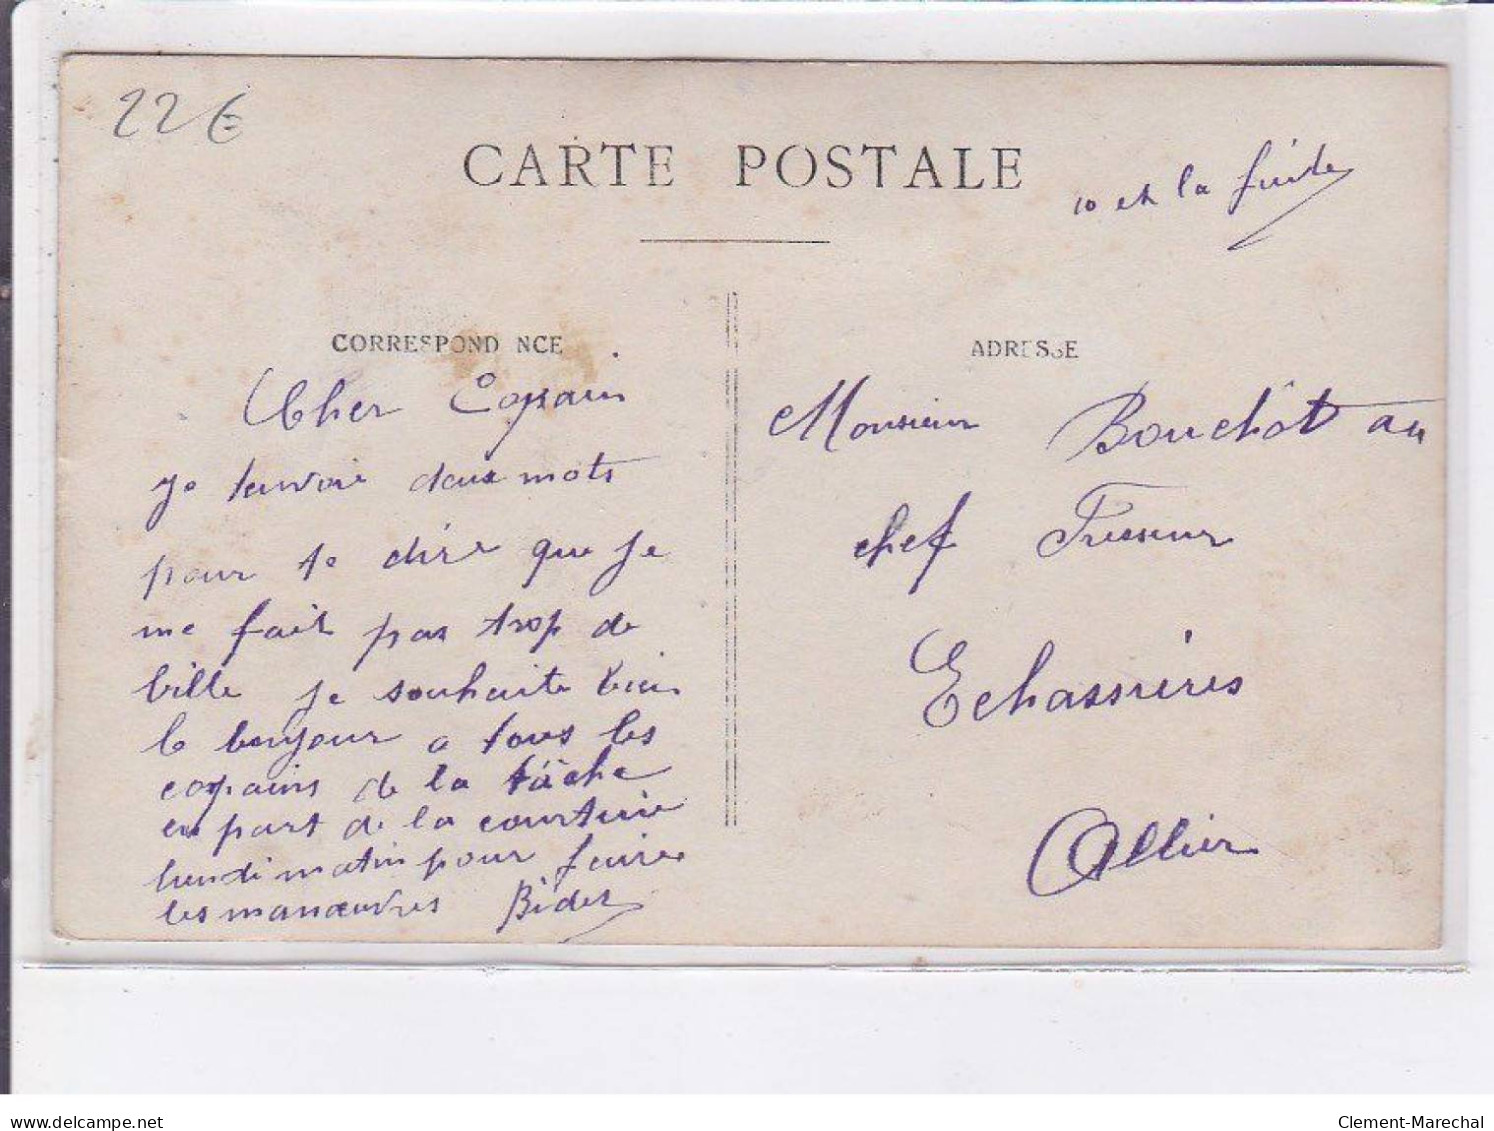 22€
CARTE POSTALE
10 et la fuite
CORRESPOND NCE
ADRESSE
Cher Copain
je tenvoie deux mots
pour te dire que je
me fait pas trop de
bille je souhaite bien
le bonjour a tous les
copains de la tâche
en part de la courtine
lundi matin pour faire
les manœuvres Bider
Monsieur Bouchôt au
chef
Echassières
Allier
delcampe.net
Clement-Marechal